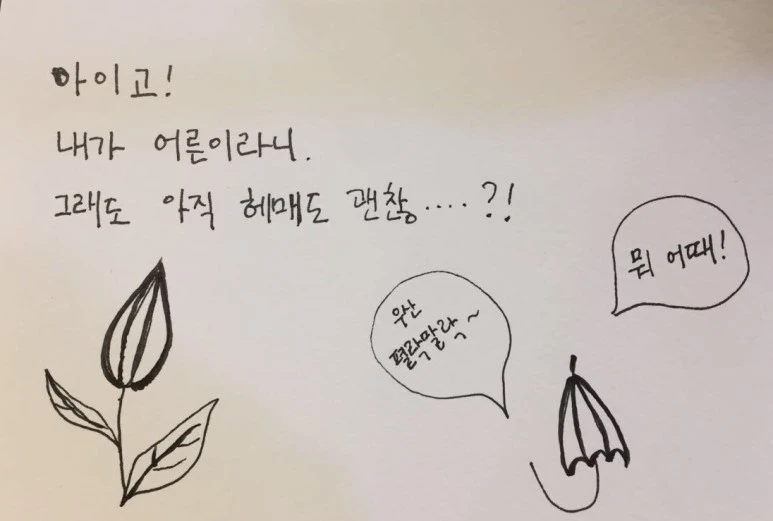 아이고!
내가 어른이라니.
그래도 아직 헤매도 괜찮....?!
뭐 어때!
우산
펼락말락~